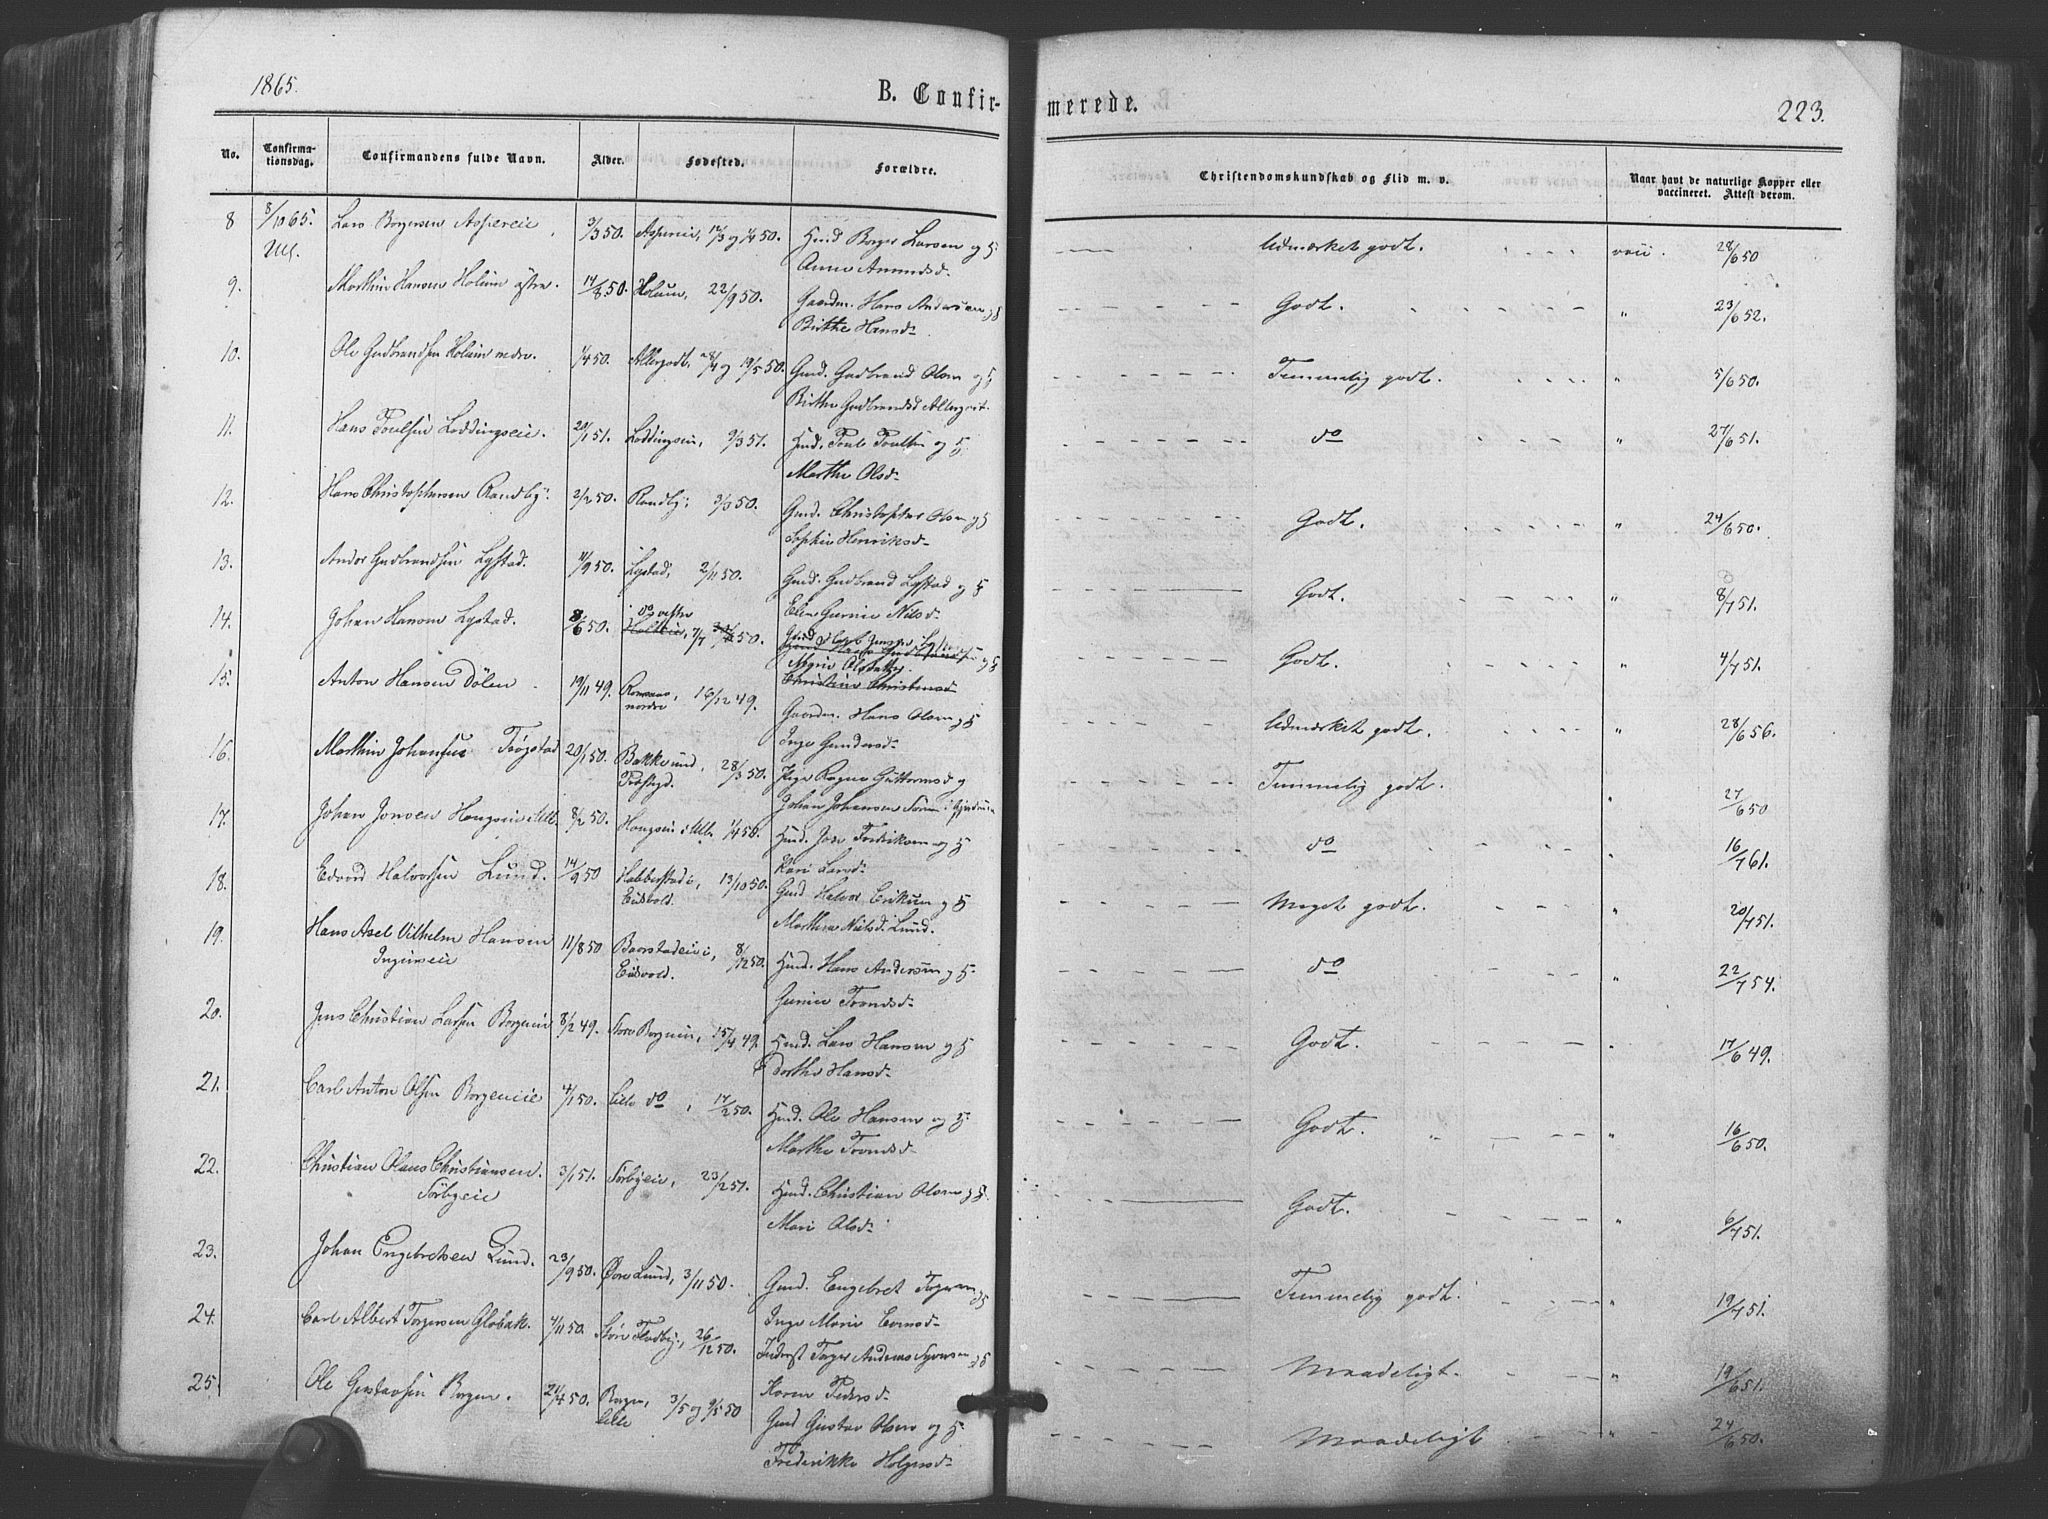 1865.
B. Confir-
merede.
223.
No.
Confirma-
tionsdag.
Confirmandens fulde Navn.
Alder.
Fødested.
Forældre.
Christendomskundskab og Flid m. v.
Naar havt de naturlige Kopper eller
vaccineret. Attest derom.
8 8/10 65. Lars Borgersen Aspereie 3/3 50. Aspereie, 12/3 og 1/4 50. Huusmd Borger Larsen og H
Anne Amundsd.
Udmærket godt. vacc. 28/6 50
9. Marthin Hansen Holum østre. 14/8 50. Holum, 22/9 50. Gaardm. Hans Andersen og H
Birthe Hansd.
Godt. " 23/6 52.
10. Ole Gudbrandsen Holum nedre. 1/4 50. Allergodt, 28/4 og 19/5 50. Gmd. Gudbrand Olsen og H
Birthe Gudbrandsd Allergodt.
Temmelig godt. " 5/6 50.
11. Hans Poulsen Loddingseie. 20/1 51. Loddingseie, 9/3 51. Hmd. og H
Marthe Olsd.
do " 27/6 51.
12. Hans Christophersen Randby. 2/2 50. Randby, 3/3 50. Gmd. Christopher Olsen og H
Sophie Henriksd.
Godt. " 24/6 50.
13. Andor Gudbrandsen Lystad. 11/9 50. Lystad, 2/11 50. Gmd. Gudbrand Lystad og H
Elen Gurine Nilsd.
Godt. " 8/7 51.
14. Johan Hansen Lystad. 8/6 50. do vestre 7/7 50.
Godt. " 4/7 51.
15. Anton Hansen Dølen 19/11 49. Romsaas nordre, 16/12 49. Gaardm. Hans Olsen og H
Inge Gundersd.
Udmærket godt. " 28/6 56.
16. Marthin Johansen Frogstad 20/1 50. Bakke und. 28/3 50. Pige Ragne Guttormsd og
Johan Johansen
Temmelig godt. " 27/6 50
17. Johan Jonsen Hougseie i Ull. 8/2 50. Hougseie i Ull. 1/4 50. Hmd. Jon Fredriksen og H
Kari Larsd.
do " 16/7 61.
18. Edvard Halvorsen Lund. 14/9 50 Habberstad i Eidsvold. 13/10 50. Gmd Halvor Eriksen og H
Marthea Nielsd. Lund.
Meget godt. " 20/7 51.
19. Hans Axel Vilhelm Hansen 11/8 50. Baarstadeie i Eidsvold. 8/12 50. Hmd. Hans Andersen og H
Gunie Trondsd.
do " 22/7 54.
20. Jens Christian Larsen Borgeneie 8/2 49. Store Borgeneie, 15/4 49. Hmd. Lars Hansen og H
Dorthe Hansd.
Godt. " 17/6 49.
21. Carl Anton Olsen Borgeneie 4/1 50. Lille do, 17/2 50. Hmd. Ole Hansen og H
Marthe Trondsd.
Godt. " 16/6 50.
22. Christian Olaus Christiansen. 3/1 51. Sørbyeie, 23/2 51. Hmd. Christian Olsen og H
Sørbyeie
Mari Olsd.
Godt. " 6/7 51.
23. Johan Engebretsen Lund. 23/9 50. Øvre Lund, 3/11 50. Gmd. Engebret og H
Inge Marie
Temmelig godt. " 19/7 51.
24. Carl Albert Torgersen Globak. 4/11 50. Store Fladby, 26/12 50. Inderst Torger Andreas og H
Karen Pedersd.
Maadeligt. " 19/6 51.
25. Ole Gustavsen Borgen. 21/4 50. Borgen, lille 3/5 og 9/5 50 Gmd Gustav Olsen og H
Frederikke Holgersd.
Maadeligt " 24/6 50.